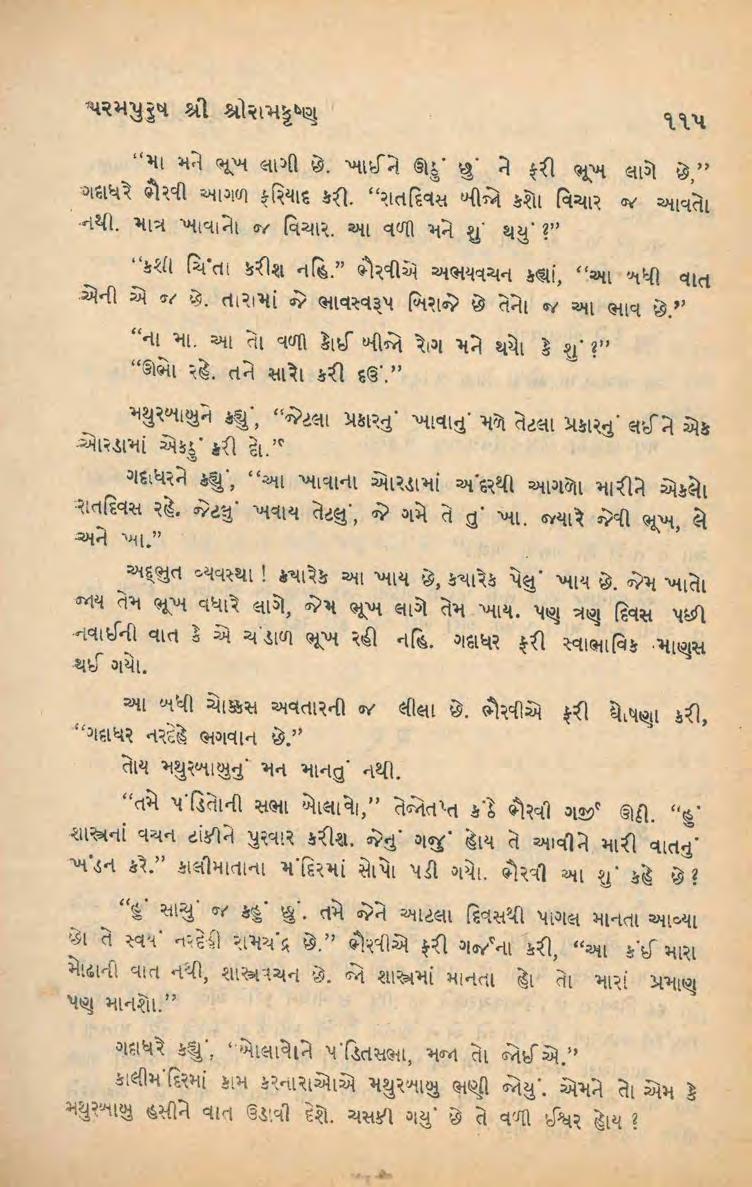 પરમપુરુષ શ્રી શ્રીરામકૃષ્ણ
૧૧૫
“મા મને ભૂખ લાગી છે. ખાઈને ઊઠું છું ને ફરી ભૂખ લાગે છે,”
ગદાધરે ભૈરવી આગળ ફરિયાદ કરી. “રાતદિવસ બીજો કશો વિચાર જ આવતો
નથી. માત્ર ખાવાનો જ વિચાર. આ વળી મને શું થયું ?”
“કશી ચિંતા કરીશ નહિ.” ભૈરવીએ અભયવચન કહ્યાં, “આ બધી વાત
એની એ જ છે. તારામાં જે ભાવસ્વરૂપ બિરાજે છે તેનો જ આ ભાવ છે.”
“ના મા. આ તો વળી કોઈ બીજો રોગ મને થયો કે શું ?”
“ઊભો રહે. તને સારો કરી દઉં.”
મથુરબાબુને કહ્યું, “જેટલા પ્રકારનું ખાવાનું મળે તેટલા પ્રકારનું લઈને એક
ઓરડામાં એકઠું કરી દો.”
ગદાધરને કહ્યું, “આ ખાવાના ઓરડામાં અંદરથી આગળો મારીને એકલો
રાતદિવસ રહે. જેટલું ખવાય તેટલું, જે ગમે તે તું ખા. જ્યારે જેવી ભૂખ, લે
અને ખા.”
અદ્ભુત વ્યવસ્થા ! ક્યારેક આ ખાય છે, કયારેક પેલું ખાય છે. જેમ ખાતો
જાય તેમ ભૂખ વધારે લાગે, જેમ ભૂખ લાગે તેમ ખાય. પણ ત્રણ દિવસ પછી
નવાઈની વાત કે એ ચંડાળ ભૂખ રહી નહિ. ગદાધર ફરી સ્વાભાવિક માણસ
થઈ ગયો.
આ બધી ચોક્કસ અવતારની જ લીલા છે. ભૈરવીએ ફરી ઘોષણા કરી,
“ગદાધર નરદેહે ભગવાન છે.”
તોય મથુરબાબુનું મન માનતું નથી.
“તમે પંડિતોની સભા બોલાવો,” તેજોતપ્ત કંઠે ભૈરવી ગર્જી ઊઠી. “હું
શાસ્ત્રનાં વચન ટાંકીને પુરવાર કરીશ. જેનું ગજું હોય તે આવીને મારી વાતનું
ખંડન કરે.” કાલીમાતાના મંદિરમાં સોપો પડી ગયો. ભૈરવી આ શું કહે છે ?
“હું સાચું જ કહું છું. તમે જેને આટલા દિવસથી પાગલ માનતા આવ્યા
છો તે સ્વયં નરદેહી રામચંદ્ર છે.” ભૈરવીએ ફરી ગર્જના કરી, “આ કંઈ મારા
મોઢાની વાત નથી, શાસ્ત્રવચન છે. જો શાસ્ત્રમાં માનતા હો તો મારાં પ્રમાણ
પણ માનશો.”
ગદાધરે કહ્યું, “બોલાવોને પંડિતસભા, મજા તો જોઈએ.”
કાલીમંદિરમાં કામ કરનારાઓએ મથુરબાબુ ભણી જોયું. એમને તો એમ કે
મથુરબાબુ હસીને વાત ઉડાવી દેશે. ચસકી ગયું છે તે વળી ઈશ્વર હોય ?